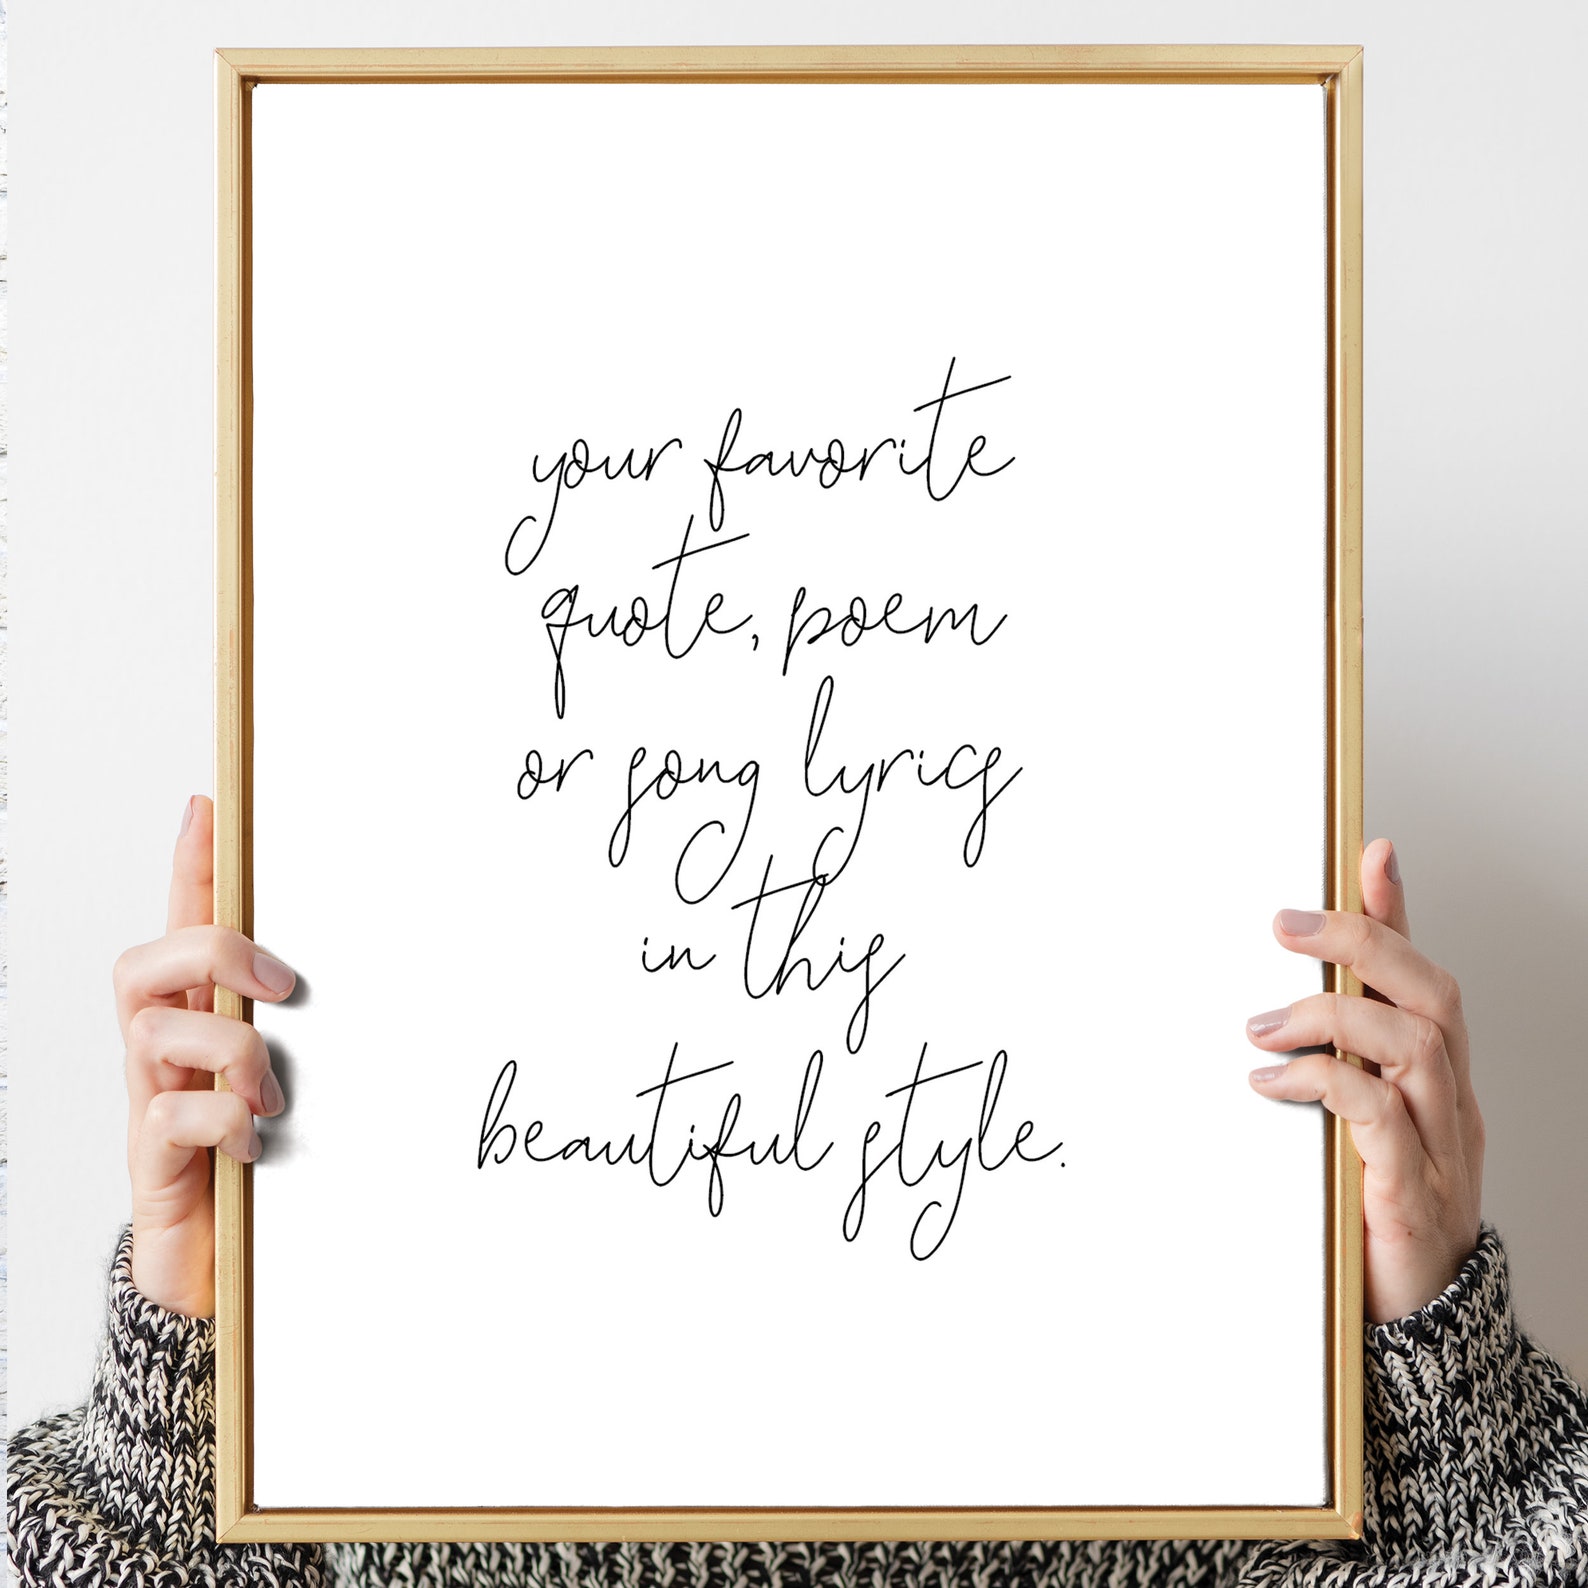 your favorite
quote, poem
or song lyrics
in this
beautiful style.